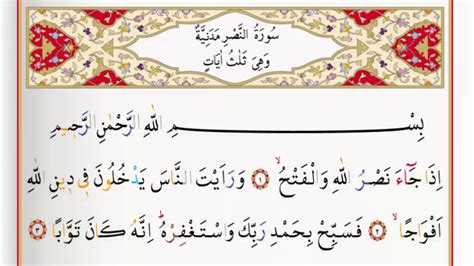 سُورَةُ النَّصْرِ مَدَنِيَّةٌ
وَهِيَ ثَلٰثُ اٰيَاتٍ
بِسْمِ اللّٰهِ الرَّحْمٰنِ الرَّحِيمِ
اِذَا جَٓاءَ نَصْرُ اللّٰهِ وَالْفَتْحُۙ ﴿١﴾ وَرَاَيْتَ النَّاسَ يَدْخُلُونَ فٖي دٖينِ اللّٰهِ
اَفْوَاجًاۙ ﴿٢﴾ فَسَبِّحْ بِحَمْدِ رَبِّكَ وَاسْتَغْفِرْهُؕ اِنَّهُ كَانَ تَوَّابًا ﴿٣﴾